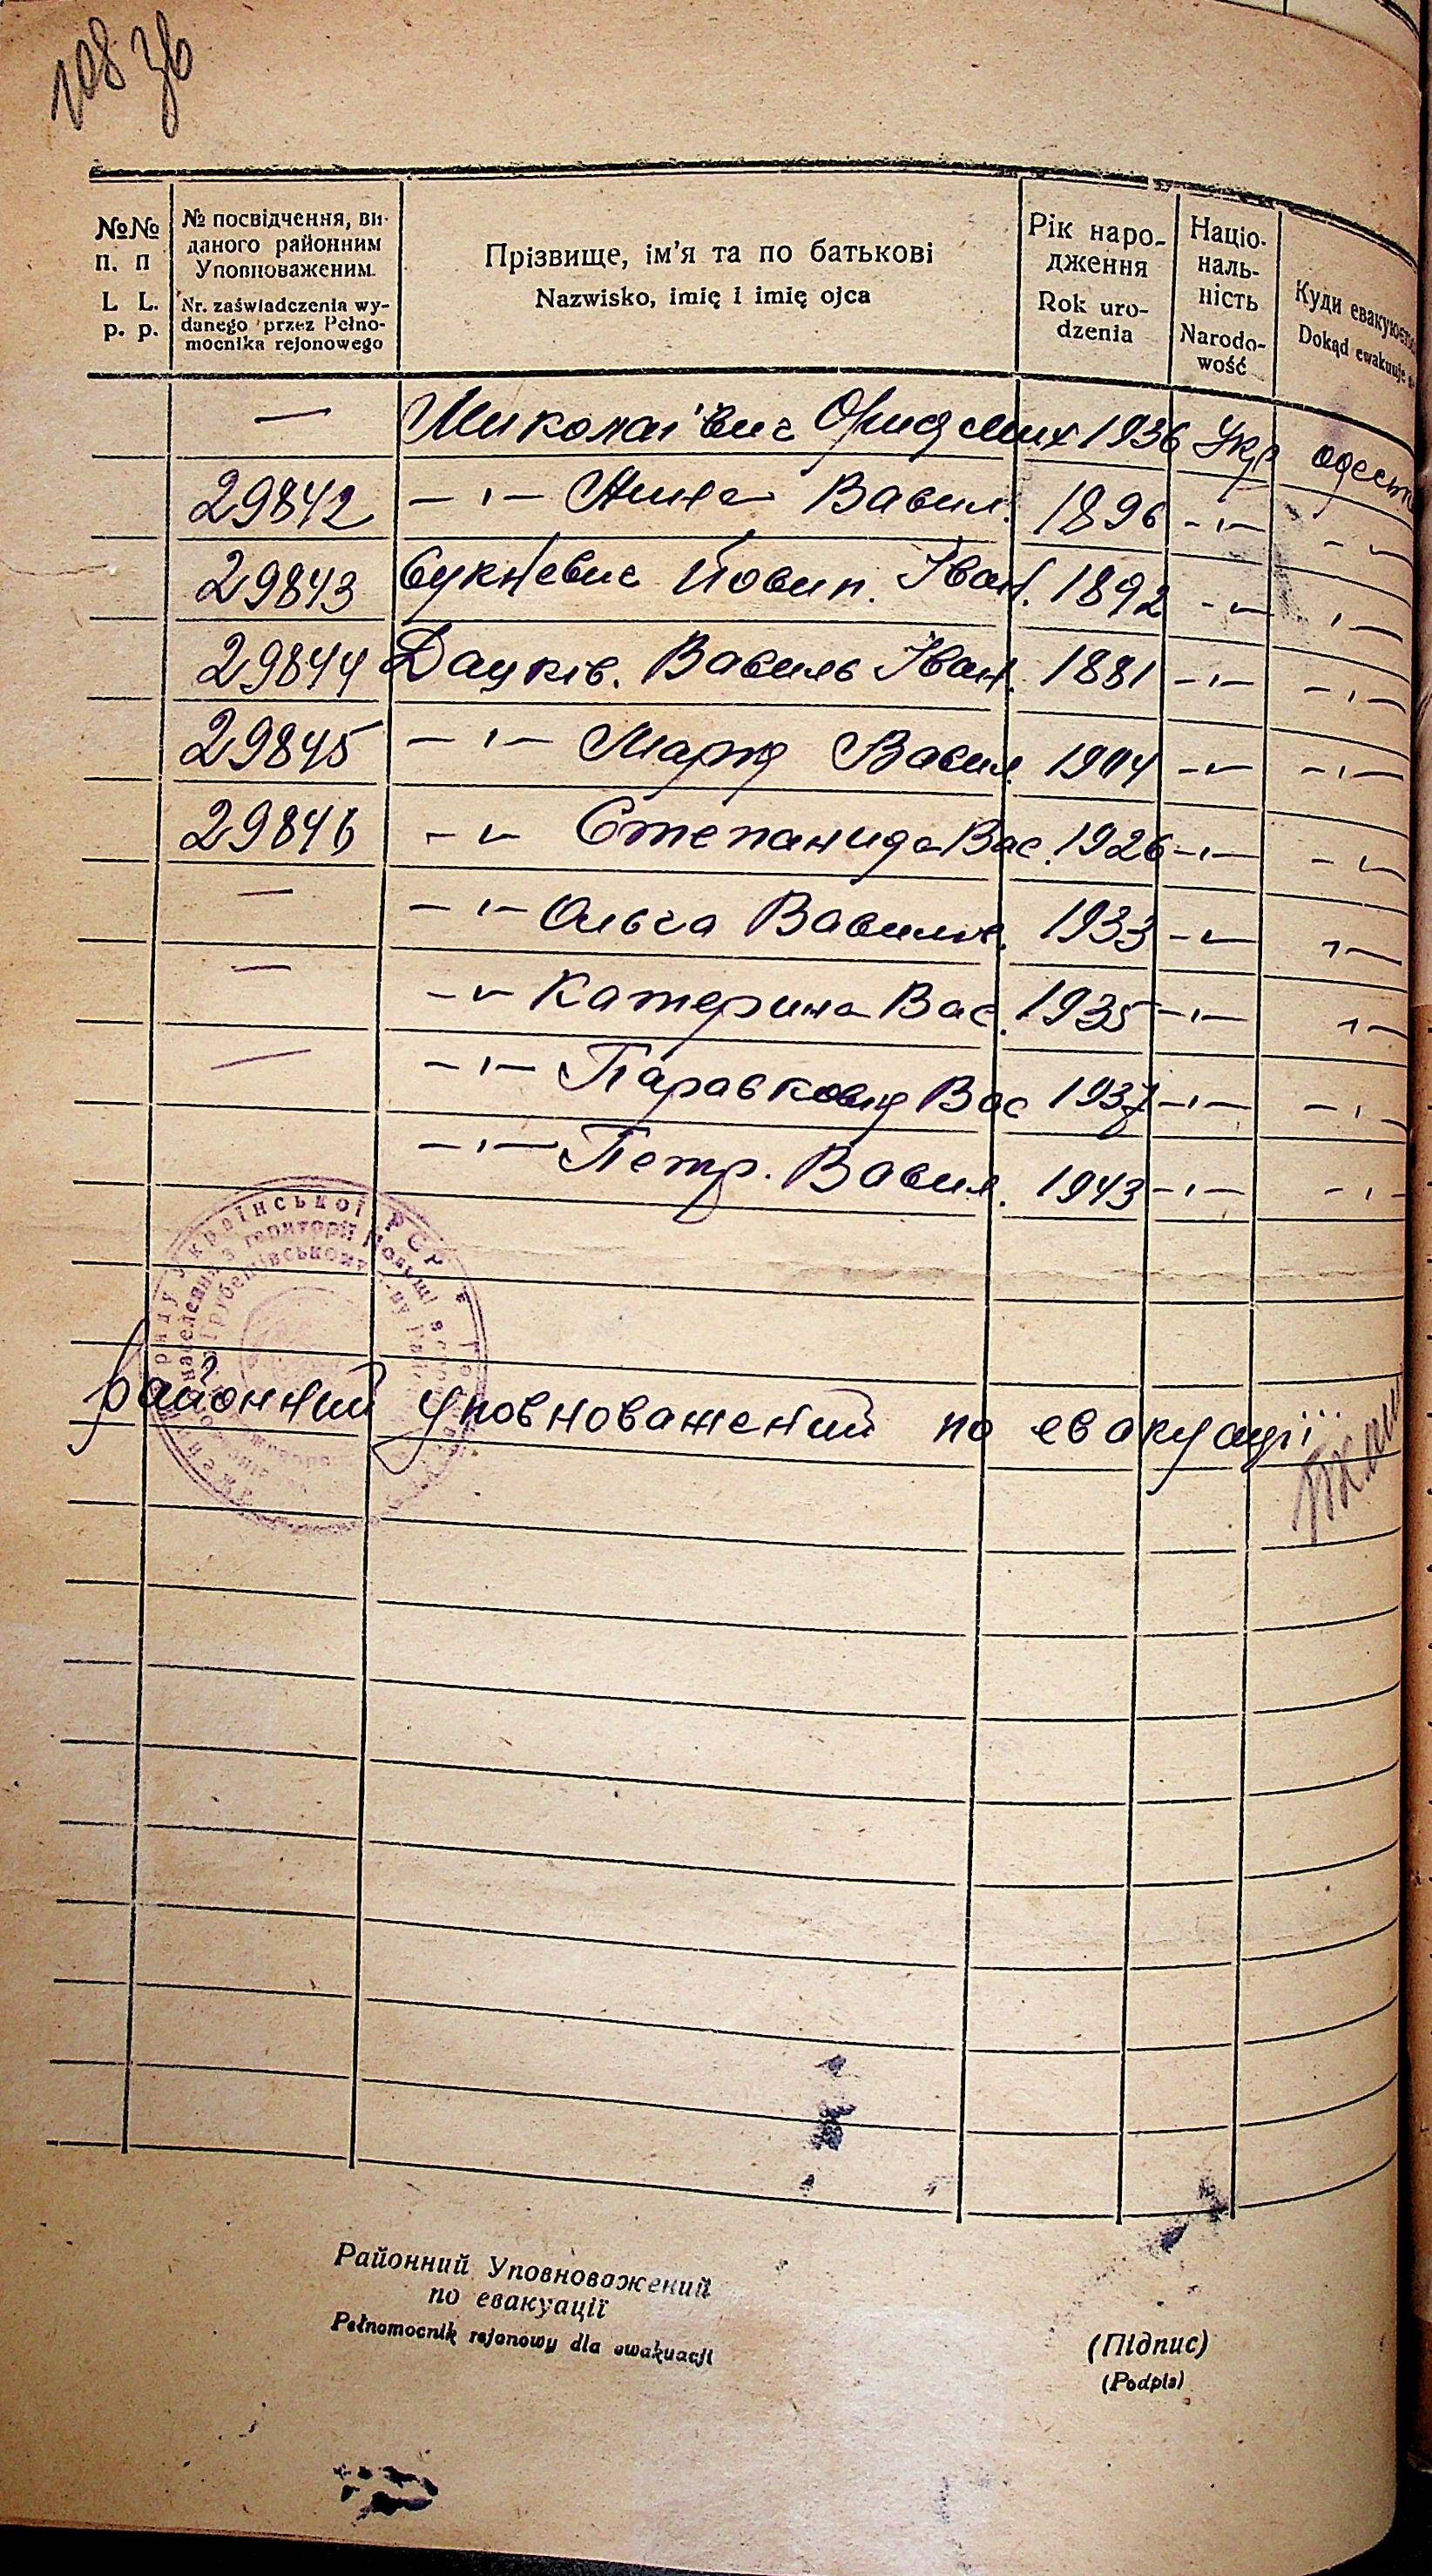 108 зв
№№ п. п
L L. p. p.
№ посвідчення, ви-
даного районним
Уповноваженим.
Nr. zaświadczenia wy-
danego przez Pełno-
mocnika rejonowego
Прізвище, ім'я та по батькові
Nazwisko, imię i imię ojca
Рік наро-
дження
Rok uro-
dzenia
Націо-
наль-
ність
Narodo-
wość
Куди евакуюєть
Dokąd ewakuuje s
— Миколаївич 1936 Укр одеськ
29842 -"- Анна Васил. 1896 -"- -"-
29843 Іван. 1892 -"- -"-
29844 Дацків. Василь Іван. 1881 -"- -"-
29845 -"- Марія Васил. 1904 -"- -"-
29846 -"- Степанида Вас. 1926 -"- -"-
— -"- Ольга Василів. 1933 -"- -"-
— -"- Катерина Вас. 1935 -"- -"-
— -"- Вас 1937 -"- -"-
-"- Петр. Васил. 1943 -"- -"-
районний уповноважений по евакуації
Української РСР
населення з території Польщі
Районний Уповноважений
по евакуації
Pełnomocnik rejonowy dla ewakuacji
(Підпис)
(Podpis)